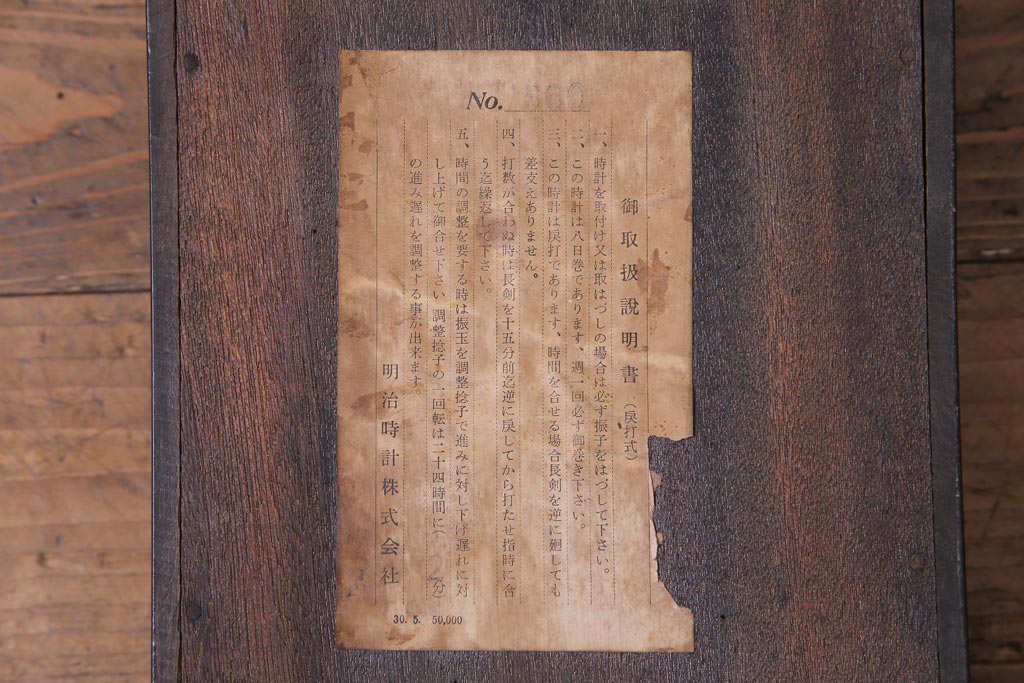 No. 560
御取扱説明書（戻打式）
一、時計を取付け又は取はづしの場合は必ず振子をはづして下さい。
二、この時計は八日巻であります、週一回必ず御巻き下さい。
三、この時計は戻打であります、時間を合せる場合長剣を逆に廻しても
差支えありません。
四、打数が合わぬ時は長剣を十五分前迄逆に戻してから打たせ指時に合
う迄繰返して下さい。
五、時間の調整を要する時は振玉を調整捻子で進みに対し下げ遅れに対
し上げて御合せ下さい 調整捻子の一回転は二十四時間に（2分）
の進み遅れを調整する事が出来ます。
明治時計株式会社
30. 5. 50,000